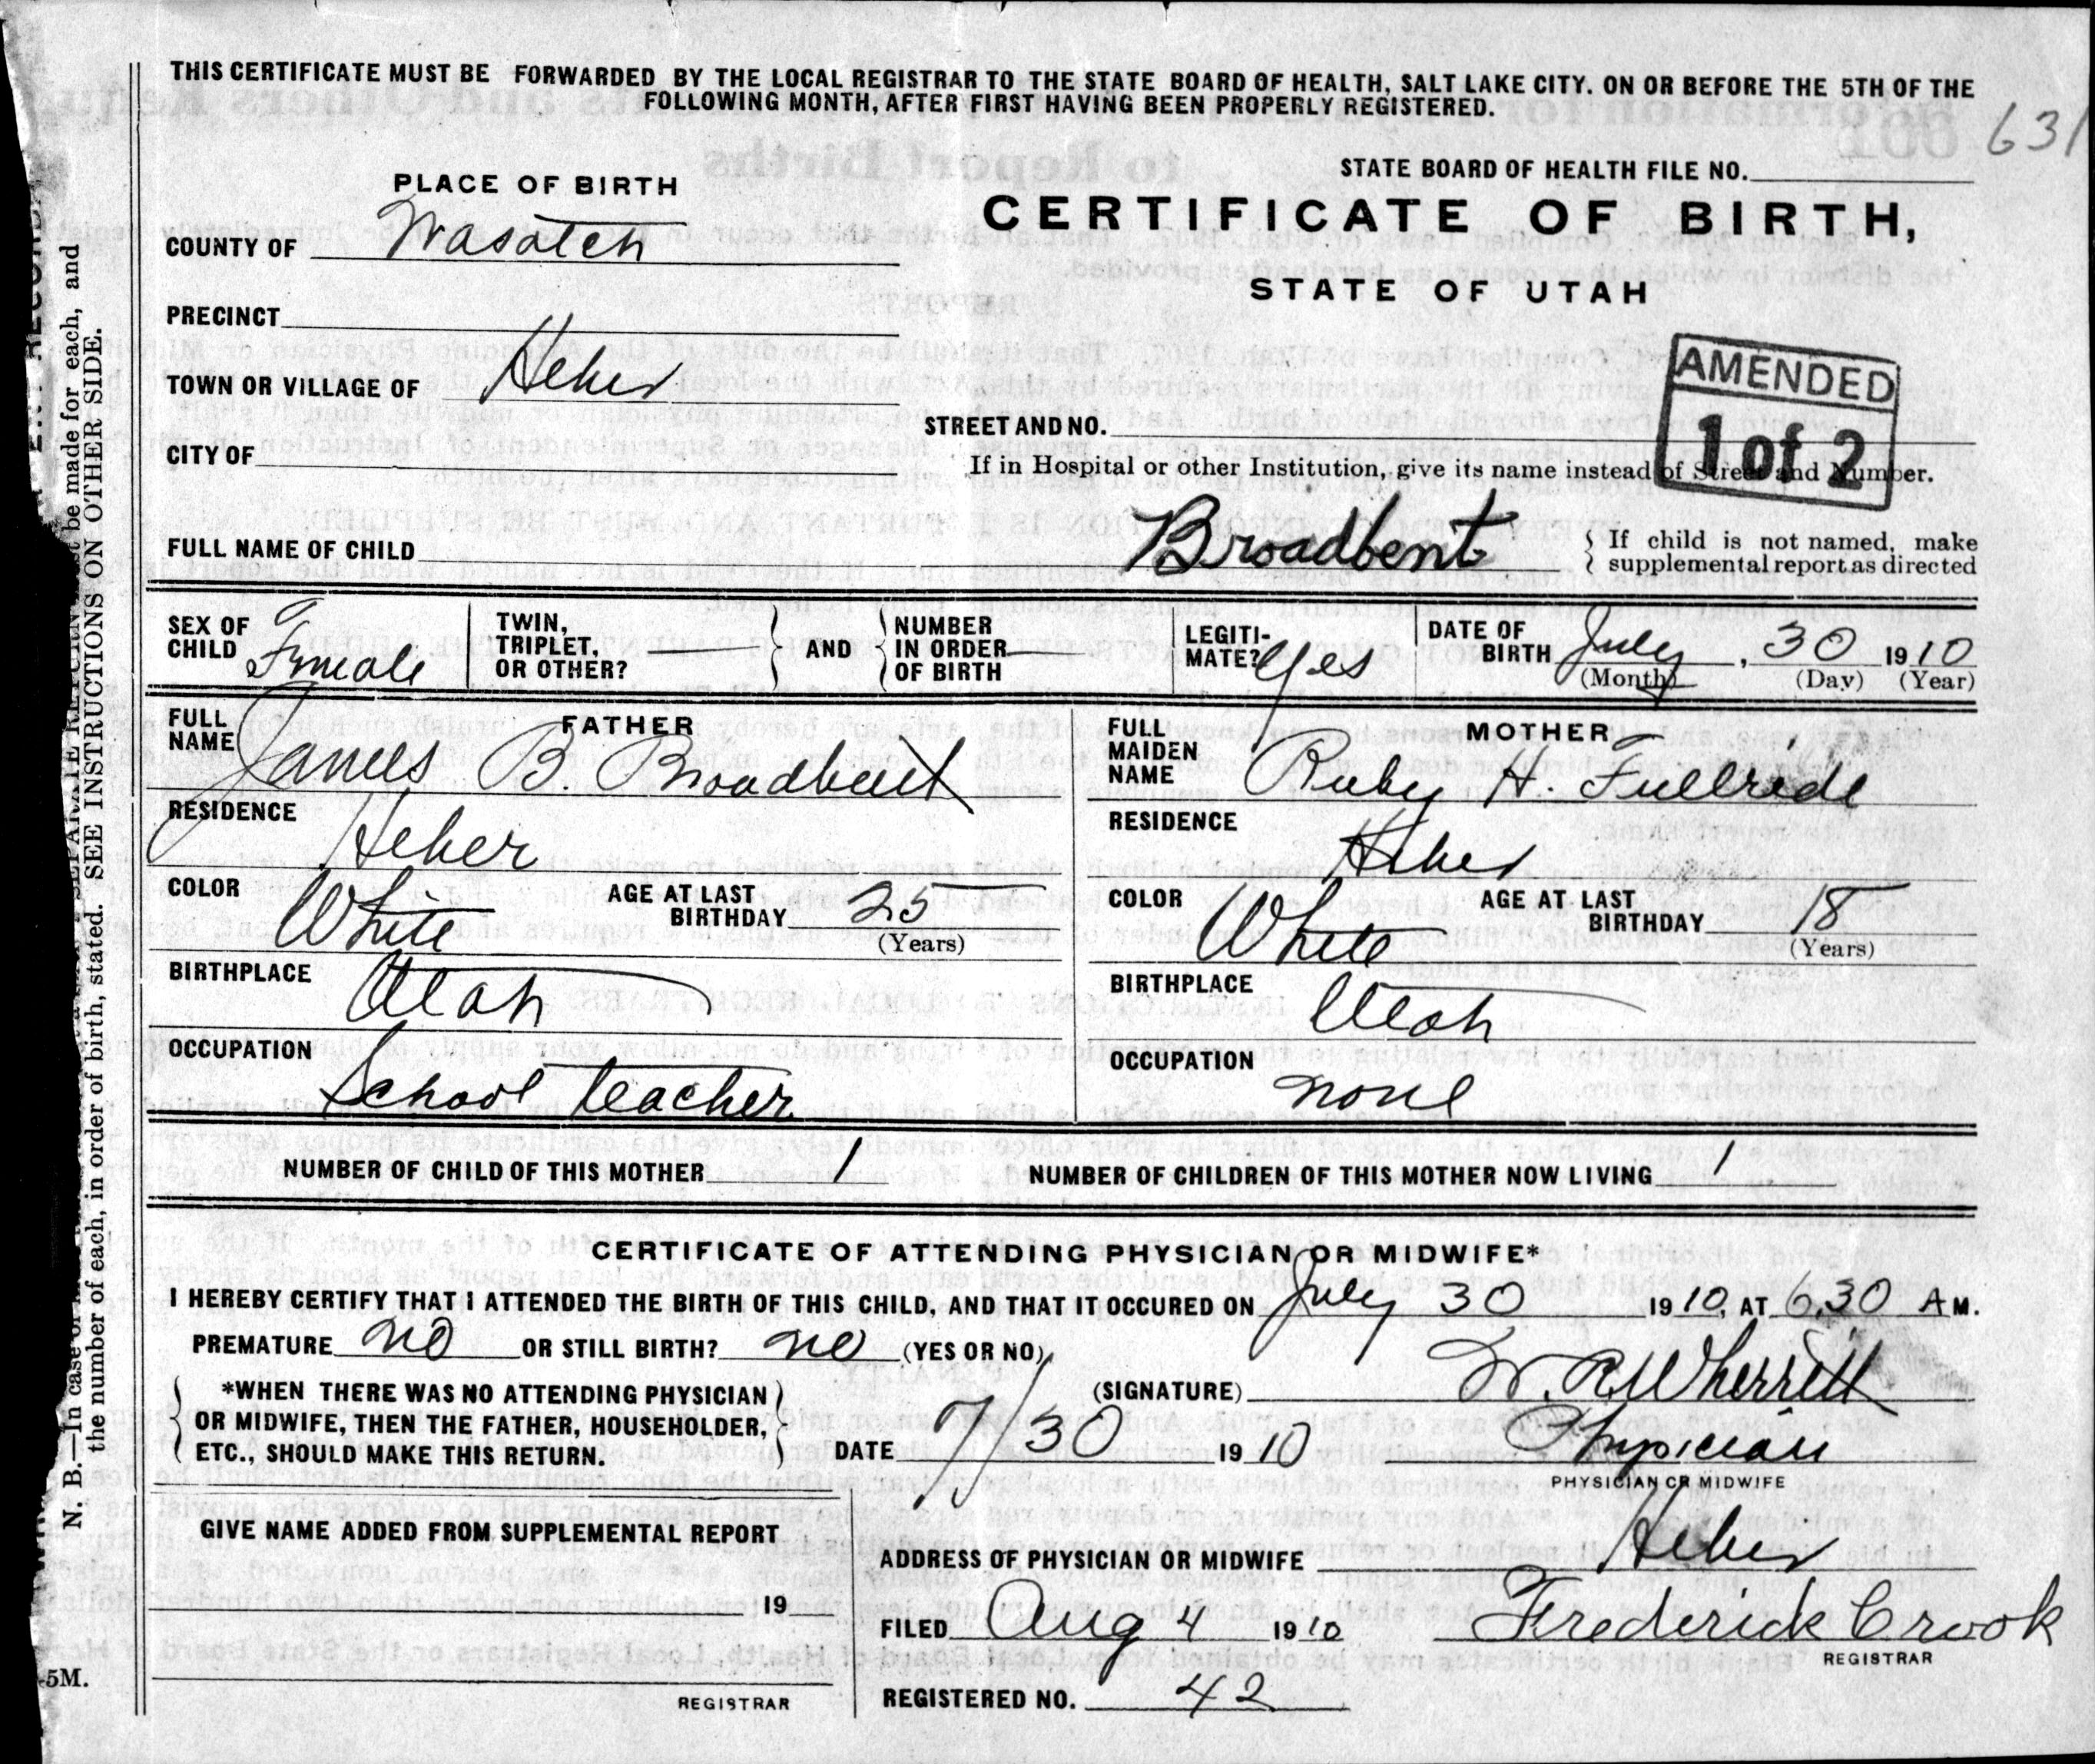 THIS CERTIFICATE MUST BE FORWARDED BY THE LOCAL REGISTRAR TO THE STATE BOARD OF HEALTH, SALT LAKE CITY. ON OR BEFORE THE 5TH OF THE
FOLLOWING MONTH, AFTER FIRST HAVING BEEN PROPERLY REGISTERED.
631
STATE BOARD OF HEALTH FILE NO.
PLACE OF BIRTH
CERTIFICATE OF BIRTH,
STATE OF UTAH
COUNTY OF Wasatch
PRECINCT
TOWN OR VILLAGE OF Heber
CITY OF
AMENDED
1 of 2
STREET AND NO.
If in Hospital or other Institution, give its name instead of Street and Number.
FULL NAME OF CHILD Broadbent
If child is not named, make
supplemental report as directed
SEX OF CHILD Female
TWIN, TRIPLET, OR OTHER?
AND NUMBER IN ORDER OF BIRTH
LEGITI-MATE? Yes
DATE OF BIRTH July, 30 1910
(Month) (Day) (Year)
FATHER
FULL NAME James B. Broadbent
RESIDENCE Heber
COLOR White AGE AT LAST BIRTHDAY 25
(Years)
BIRTHPLACE Utah
OCCUPATION School teacher
MOTHER
FULL MAIDEN NAME Ruby H. Fullride
RESIDENCE Heber
COLOR White AGE AT LAST BIRTHDAY 18
(Years)
BIRTHPLACE Utah
OCCUPATION none
NUMBER OF CHILD OF THIS MOTHER 1 NUMBER OF CHILDREN OF THIS MOTHER NOW LIVING 1
CERTIFICATE OF ATTENDING PHYSICIAN OR MIDWIFE*
I HEREBY CERTIFY THAT I ATTENDED THE BIRTH OF THIS CHILD, AND THAT IT OCCURED ON July 30 1910, AT 6.30 A M.
PREMATURE no OR STILL BIRTH? no (YES OR NO)
*WHEN THERE WAS NO ATTENDING PHYSICIAN
OR MIDWIFE, THEN THE FATHER, HOUSEHOLDER,
ETC., SHOULD MAKE THIS RETURN.
(SIGNATURE) W. R. Wherritt
DATE 7/30 1910 Physician
PHYSICIAN OR MIDWIFE
GIVE NAME ADDED FROM SUPPLEMENTAL REPORT
19
REGISTRAR
ADDRESS OF PHYSICIAN OR MIDWIFE Heber
FILED Aug 4 1910 Frederick Crook
REGISTRAR
REGISTERED NO. 42
5M.
N. B.—In case of be made for each, and
the number of each, in order of birth, stated. SEE INSTRUCTIONS ON OTHER SIDE.